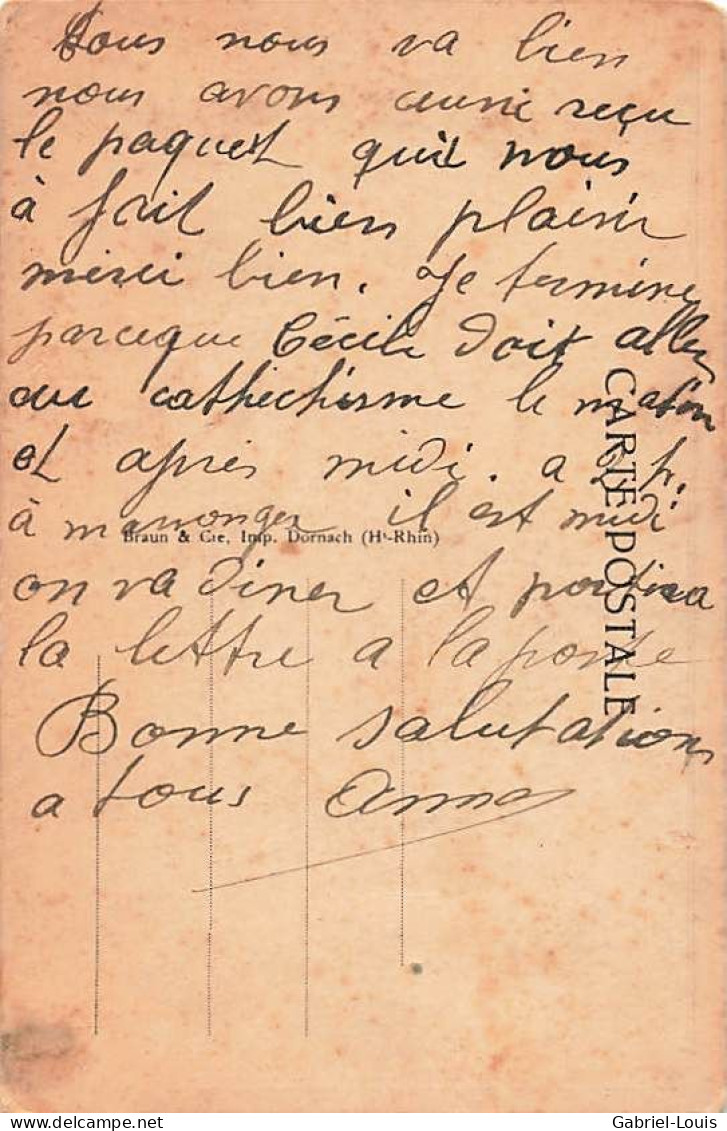 Tous nous va bien
nous avons aussi reçu
le paquest quil nous
à fait bien plaisir
merci bien. Je termine
parceque Cécile doit aller
au cathéchisme le matin
et après midi. a 2 h.
à manonger il est midi
on va diner et portera
la lettre a la poste
Bonne salutations
a tous Anna
Braun & Cie, Imp. Dornach (Ht-Rhin)
CARTE POSTALE
Gabriel-Louis